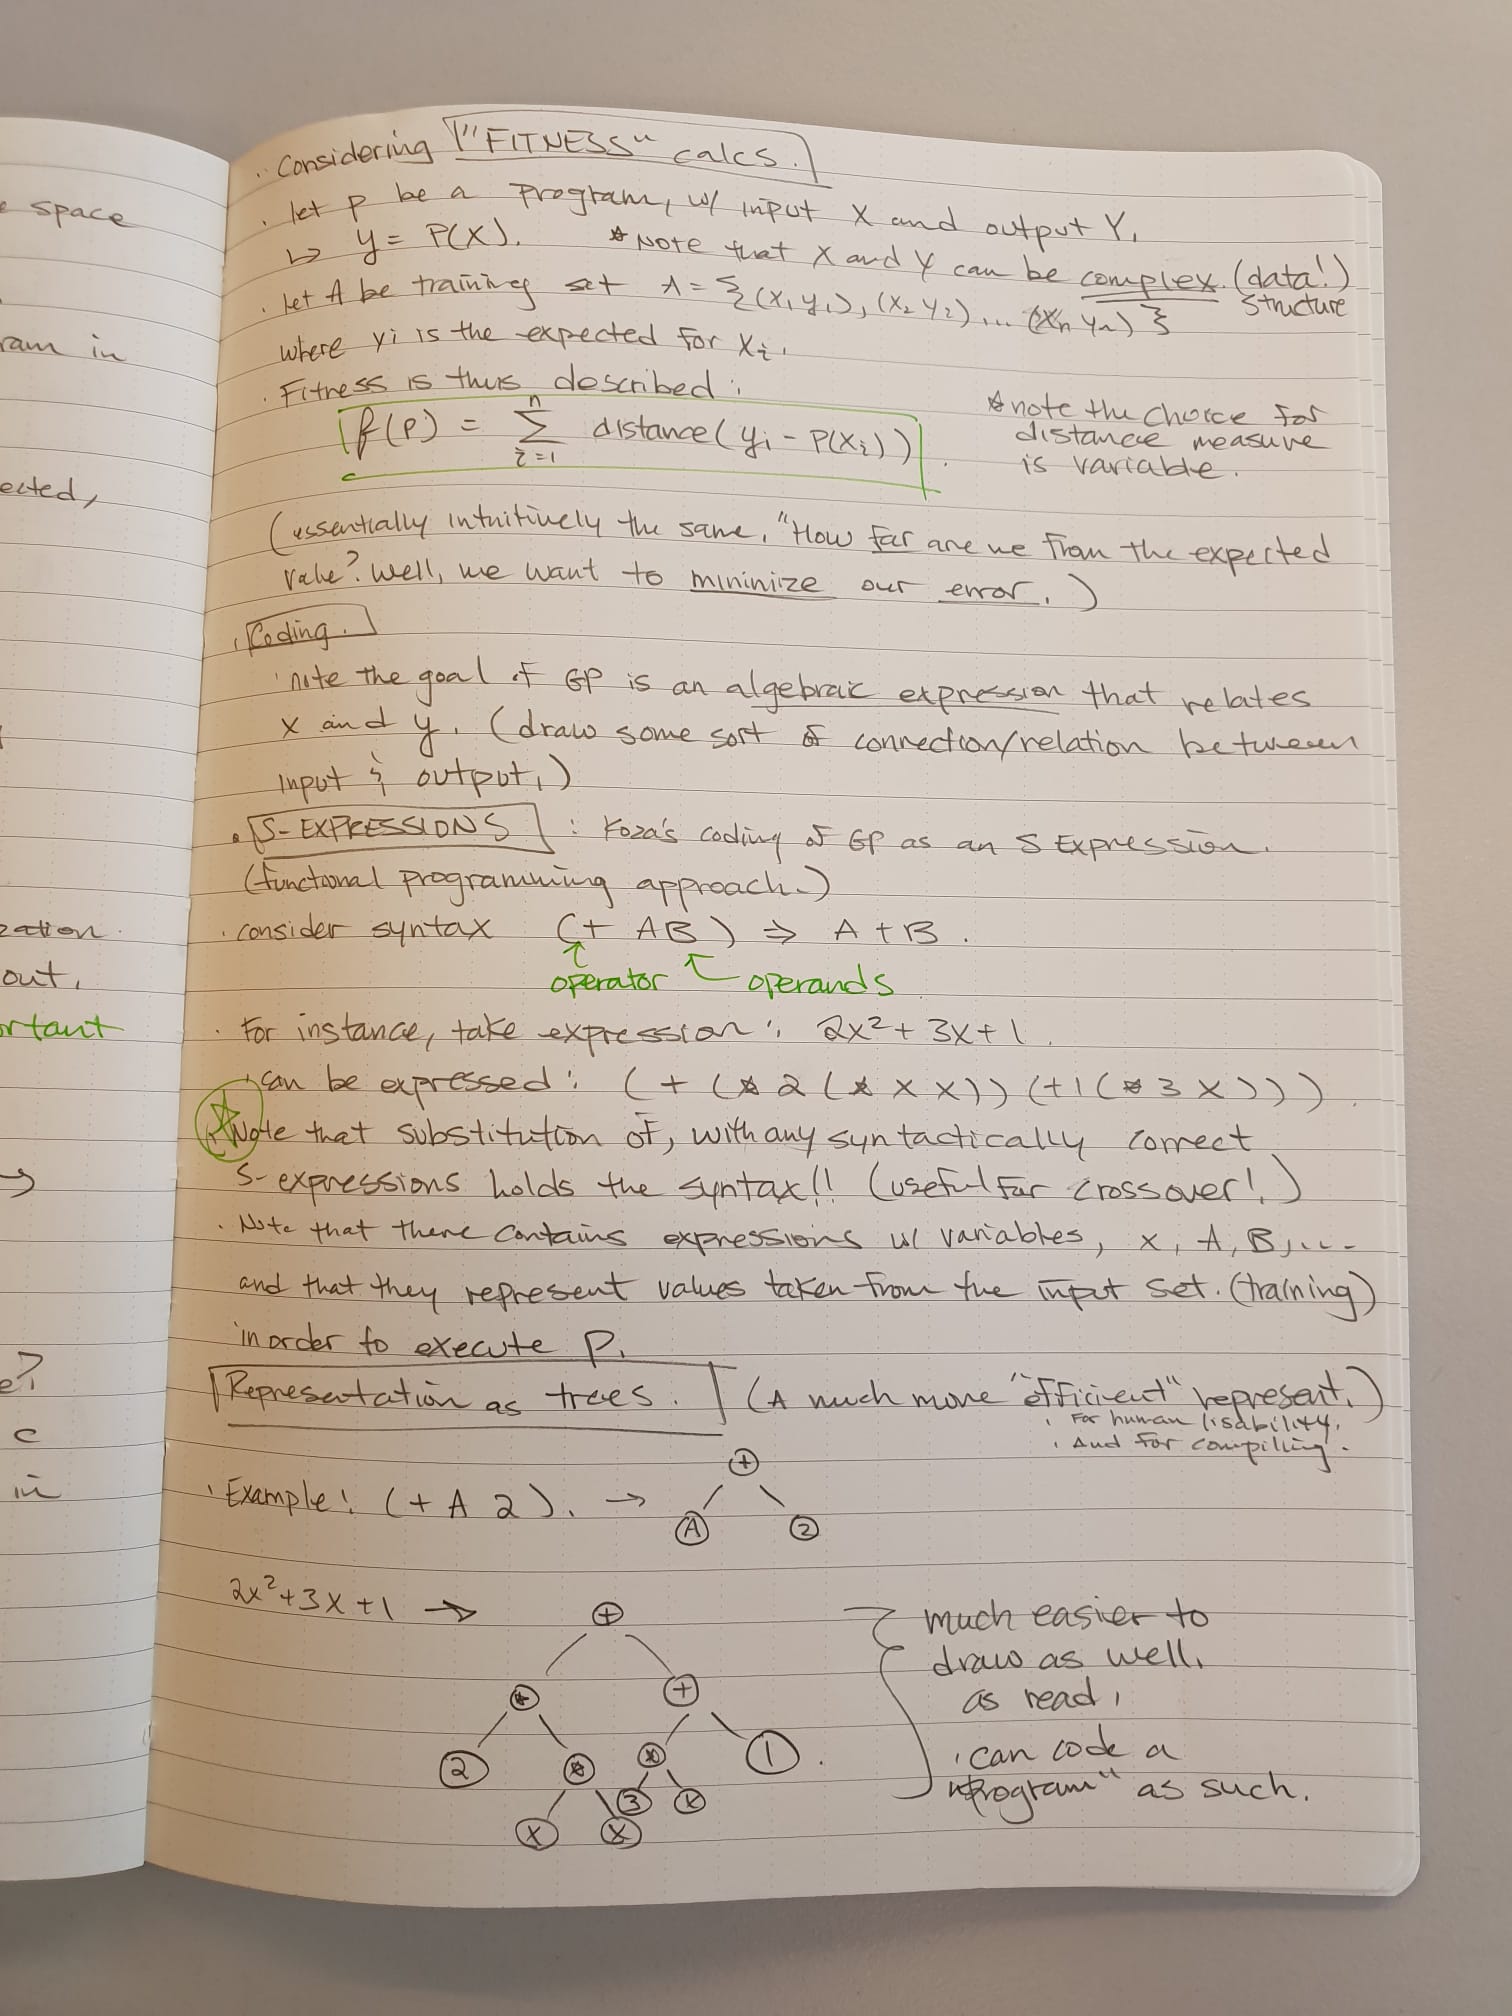 e space
ram in
ected,
zation.
out,
ortant
e?
c
in
. Considering "FITNESS" calcs.
. let p be a program, w/ input X and output Y,
↳ y = P(X). * Note that X and Y can be complex. (data!) structure
. let A be training set A = {(x, y,), (x2 y2) ... (xn yn)}
where yi is the expected for xi.
. Fitness is thus described:
f(p) = n Σ i=1 distance(yi - P(xi)).
* note the choice for
distance measure
is variable.
(essentially intuitively the same, "How far are we from the expected
value? Well, we want to mininize our error.)
. Coding.
. note the goal of GP is an algebraic expression that relates
x and y. (draw some sort of connection/relation between
input & output,)
. S-EXPRESSIONS : Koza's coding of GP as an S Expression.
(functional programming approach.)
. consider syntax (+ AB) ⇒ A + B.
operator operands
. For instance, take expression: 2x² + 3x + 1.
. can be expressed: (+ (* 2 (* x x)) (+1 (* 3 x))).
☆ Note that substitution of, with any syntactically correct
S-expressions holds the syntax!! (useful for crossover!)
. Note that there contains expressions w/ variables, x, A, B,...
and that they represent values taken from the input set. (training)
in order to execute P.
Representation as trees. (A much more "efficient" represent.)
. For human
. And for compiling.
. Example: (+ A 2). →
+
A 2
2x²+3x+1 →
+
* +
2 * * 1.
3 x
x x
much easier to
draw as well.
as read,
. can code a
"program" as such.